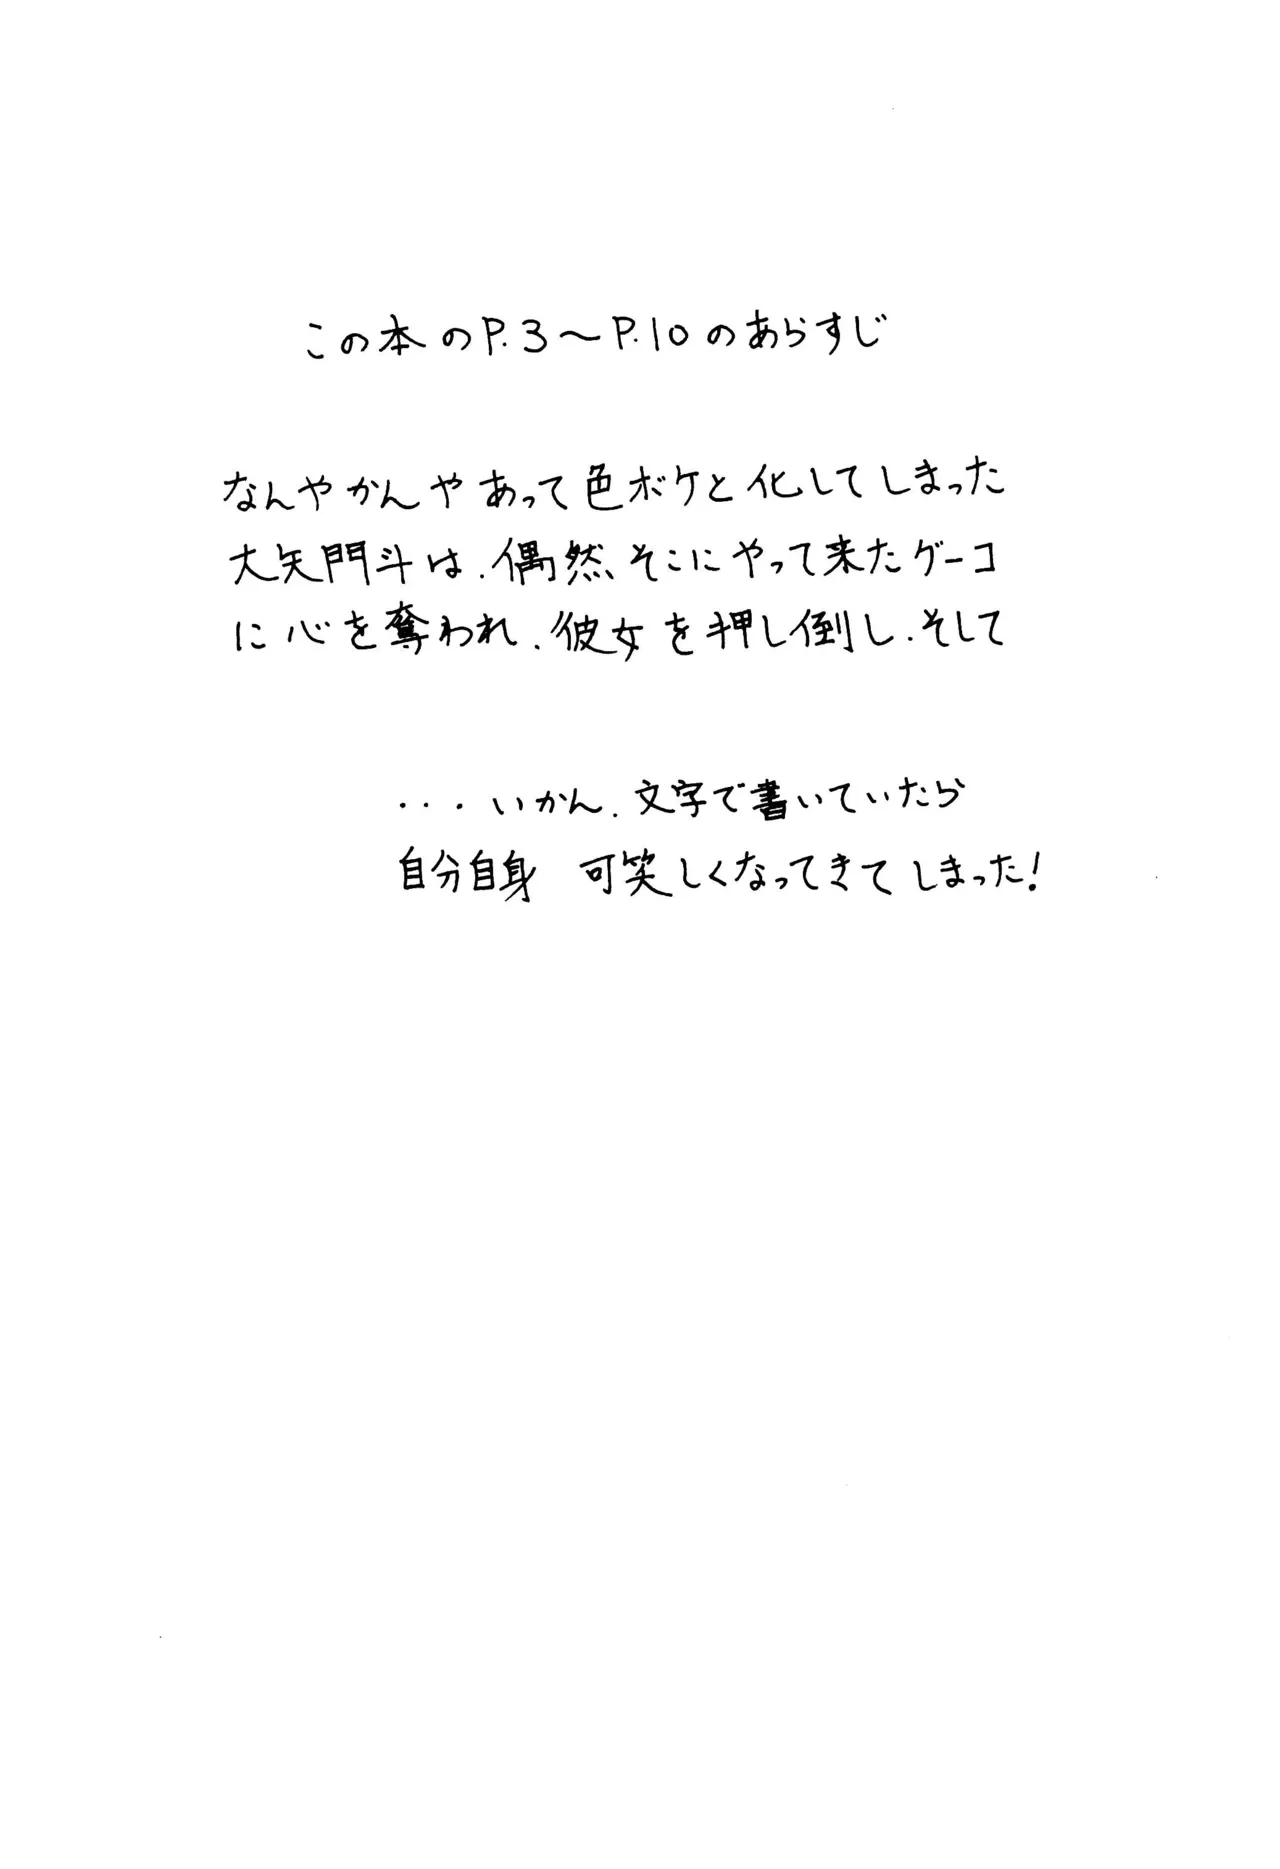 この本のP.3～P.10のあらすじ
なんやかんやあって色ボケと化してしまった
大矢門斗は、偶然、そこにやって来たゲーコ
に心を奪われ、彼女を押し倒し、そして
・・・いかん、文字で書いていたら
自分自身 可笑しくなってきてしまった！